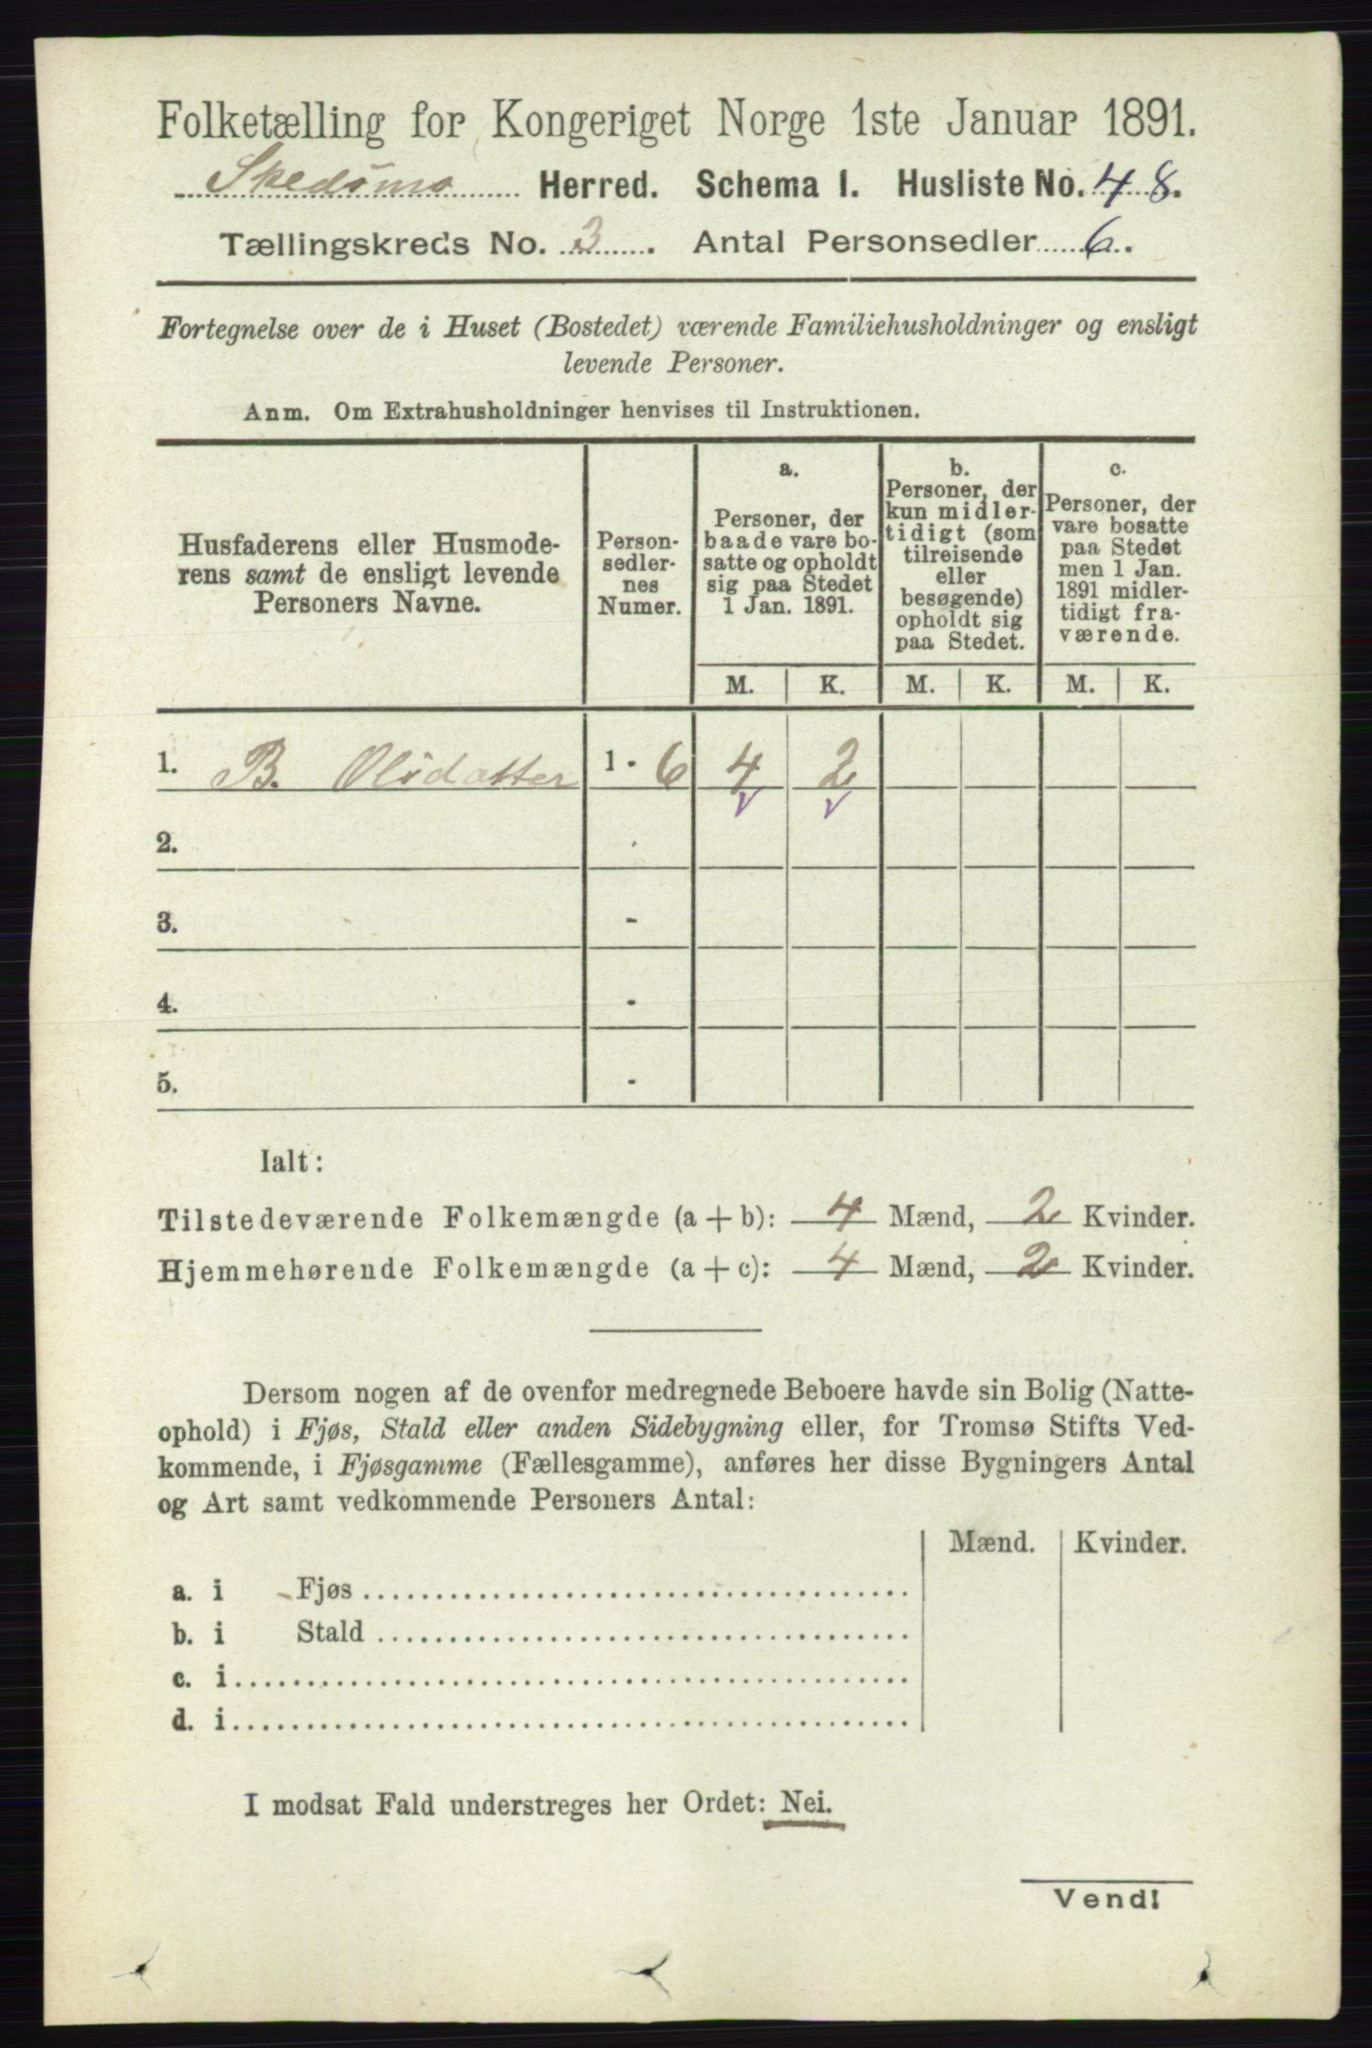 Folketælling for Kongeriget Norge 1ste Januar 1891.
Skedsmo Herred. Schema I. Husliste No. 48.
Tællingskreds No. 3. Antal Personsedler 6.
Fortegnelse over de i Huset (Bostedet) værende Familiehusholdninger og ensligt
levende Personer.
Anm. Om Extrahusholdninger henvises til Instruktionen.
Husfaderens eller Husmode-
rens samt de ensligt levende
Personers Navne.
Person-
sedler-
nes
Numer.
a.
Personer, der
baade vare bo-
satte og opholdt
sig paa Stedet
1 Jan. 1891.
b.
Personer, der
kun midler-
tidigt (som
tilreisende
eller
besøgende)
opholdt sig
paa Stedet.
c.
Personer, der
vare bosatte
paa Stedet
men 1 Jan.
1891 midler-
tidigt fra-
værende.
M. K. M. K. M. K.
1. B. Olsdatter 1 - 6 4 2
2. -
3. -
4. -
5. -
Ialt:
Tilstedeværende Folkemængde (a + b): 4 Mænd, 2 Kvinder.
Hjemmehørende Folkemængde (a + c): 4 Mænd, 2 Kvinder.
Dersom nogen af de ovenfor medregnede Beboere havde sin Bolig (Natte-
ophold) i Fjøs, Stald eller anden Sidebygning eller, for Tromsø Stifts Ved-
kommende, i Fjøsgamme (Fællesgamme), anføres her disse Bygningers Antal
og Art samt vedkommende Personers Antal:
Mænd. Kvinder.
a. i Fjøs
b. i Stald
c. i
d. i
I modsat Fald understreges her Ordet: Nei.
Vend!